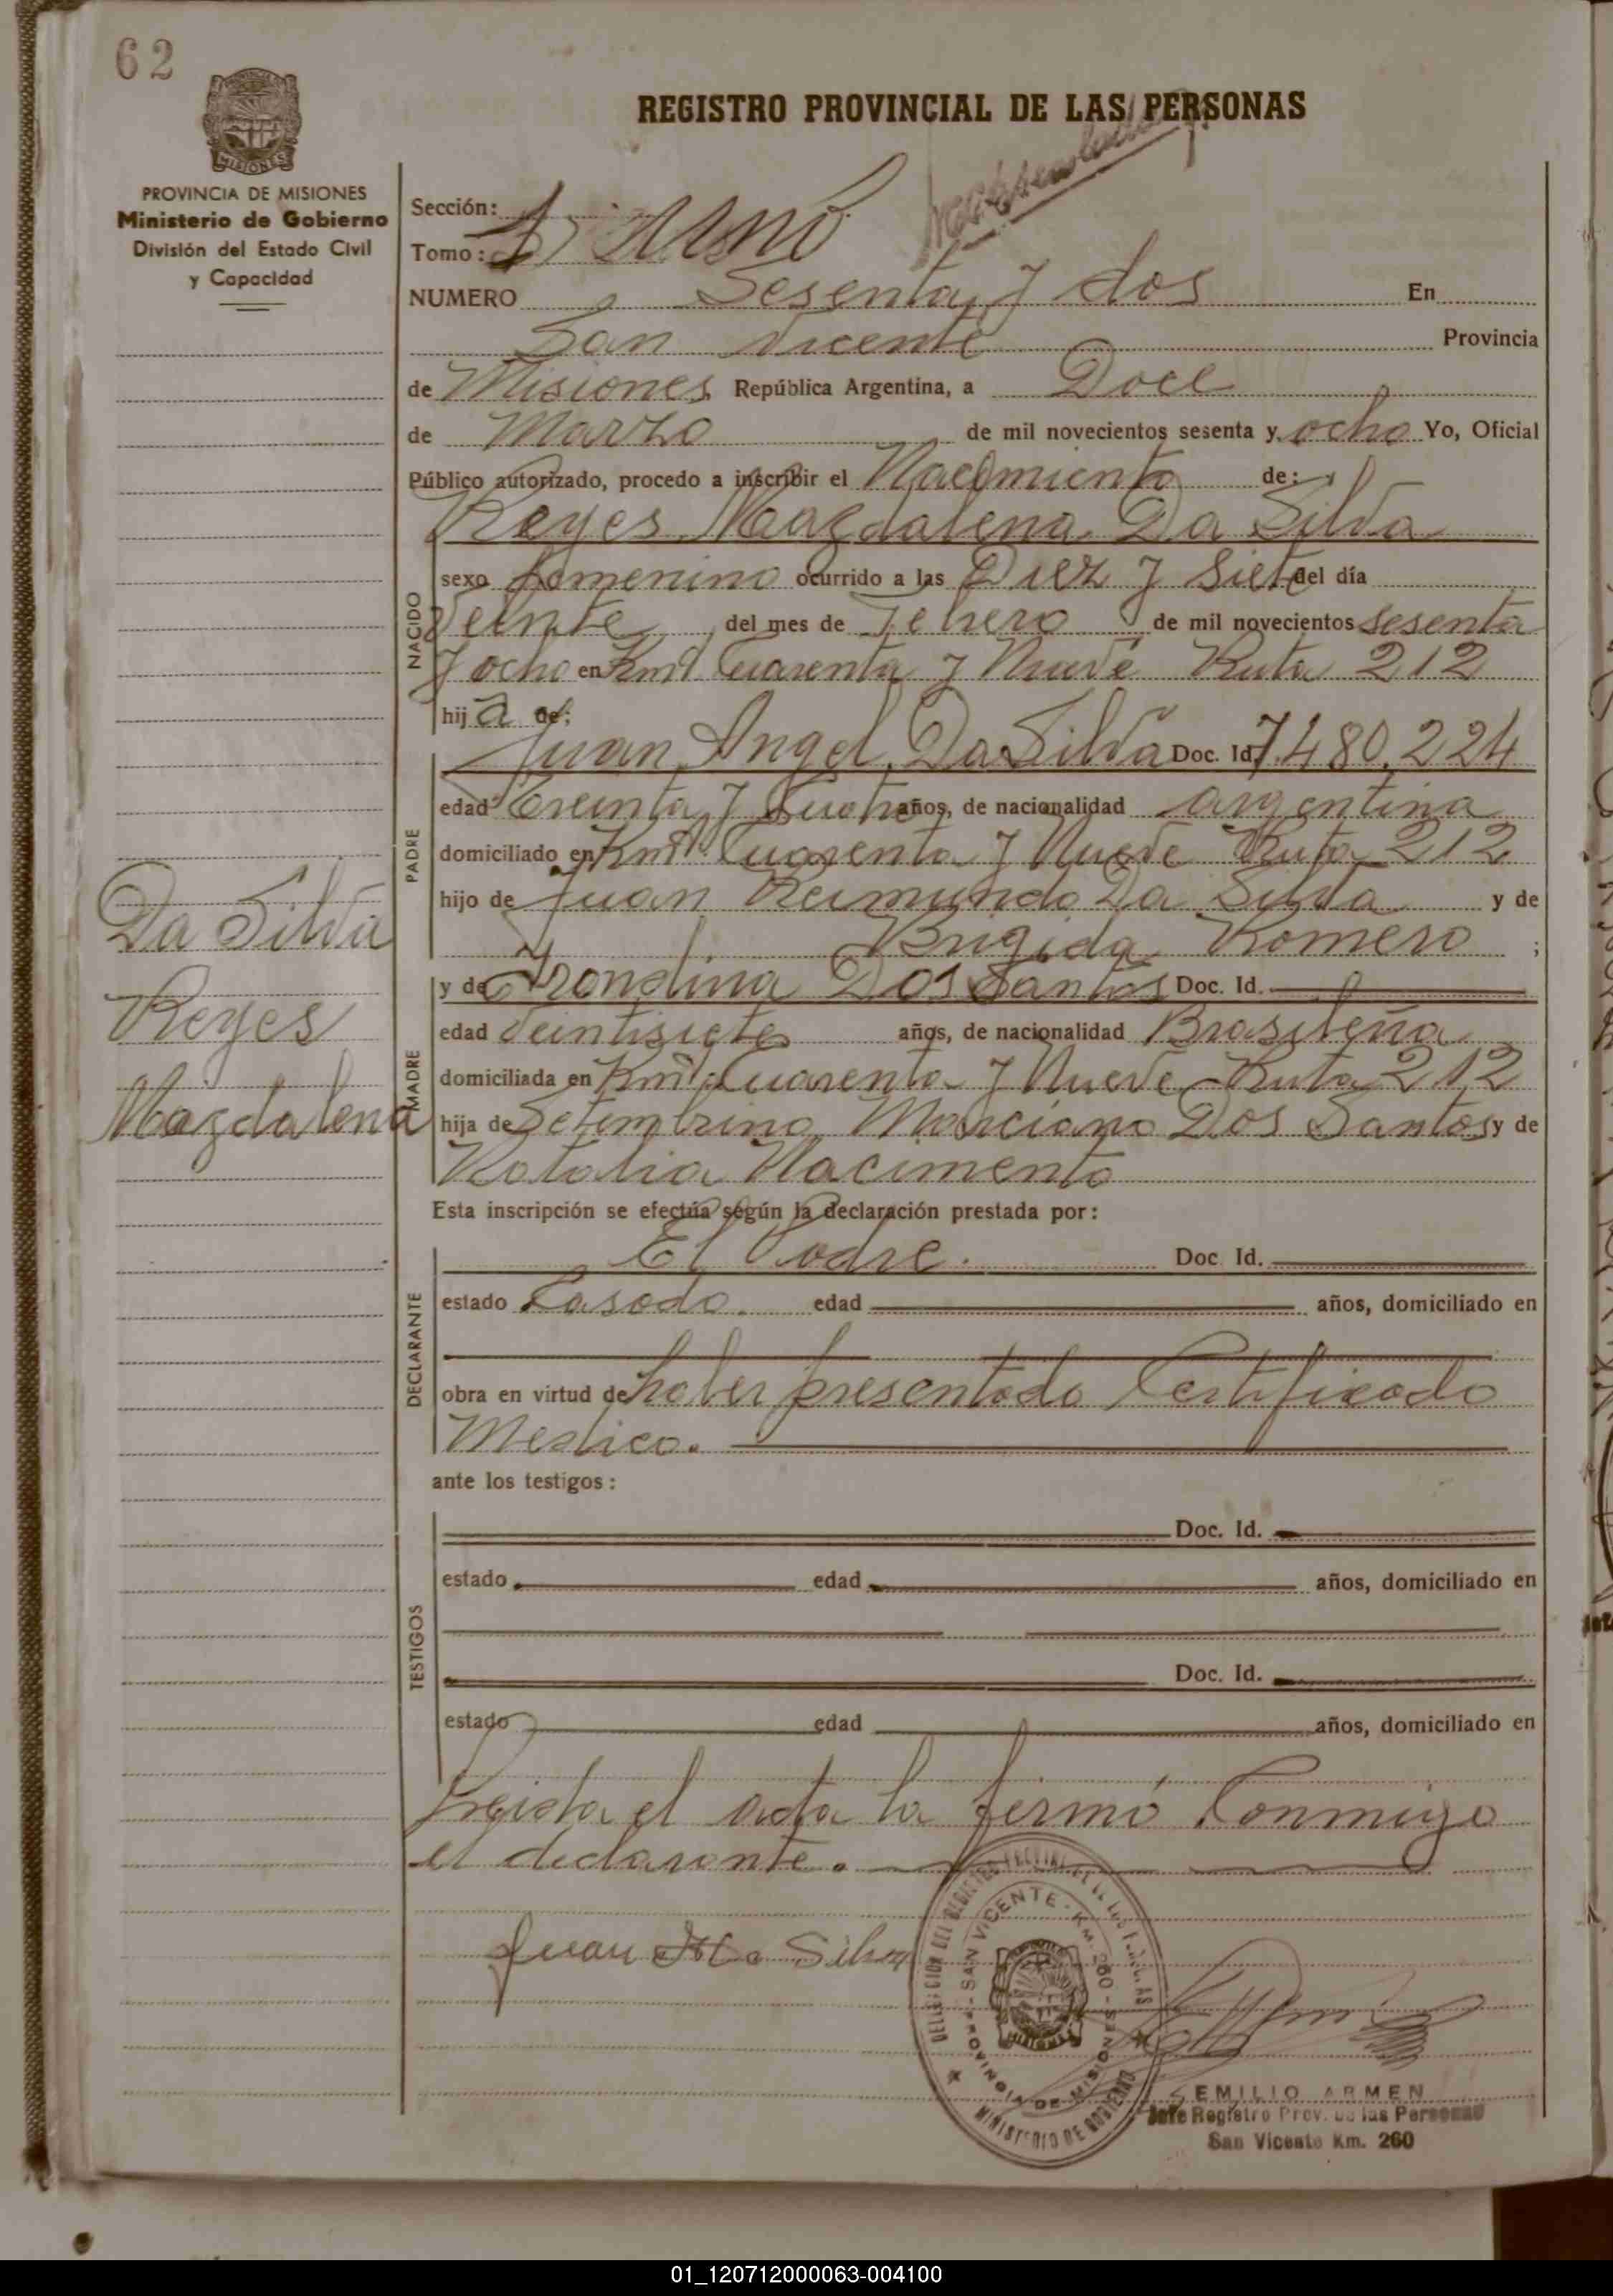 62
REGISTRO PROVINCIAL DE LAS PERSONAS
MISIONES
PROVINCIA DE MISIONES
Ministerio de Gobierno
División del Estado Civil
y Capacidad
Sección:
Tomo: 1) uno
NUMERO Sesenta y dos En
San Vicente Provincia
de Misiones República Argentina, a Doce
de Marzo de mil novecientos sesenta y ocho Yo, Oficial
Público autorizado, procedo a inscribir el Nacimiento de:
Reyes Magdalena Da Silva
NACIDO
sexo femenino ocurrido a las Diez y Siete del día
Veinte del mes de Febrero de mil novecientos sesenta
y ocho en Kmt. Cuarenta y Nueve Ruta 212
hij a de:
PADRE
Juan Angel Da Silva Doc. Id. 7.480.224
edad Treinta y años, de nacionalidad argentina
domiciliado en Kmt. Cuarenta y Nueve Ruta 212
hijo de Juan Reimundo Da Silva y de
Brigida Romero ;
MADRE
y de Dos Santos Doc. Id.
edad Veintisiete años, de nacionalidad Brasileña
domiciliada en Kmt. Cuarenta y Nueve - Ruta 212
hija de Setembrino Marciano Dos Santos y de
Natalia Nacimento
Da Silva
Reyes
Magdalena
Esta inscripción se efectúa según la declaración prestada por:
DECLARANTE
El Padre. Doc. Id.
estado Casado. edad años, domiciliado en
obra en virtud de haber presentado Certificado
Medico.
ante los testigos:
TESTIGOS
Doc. Id.
estado edad años, domiciliado en
Doc. Id.
estado edad años, domiciliado en
el acta la firmó conmigo
el declarante.
Juan Silva
SAN VICENTE - KM. 260 - PROVINCIA DE MISIONES
MINISTERIO DE GOBIERNO
MISIONES
EMILIO ARMEN
Jefe Registro Prov. de las Personas
San Vicente Km. 260
01_120712000063-004100